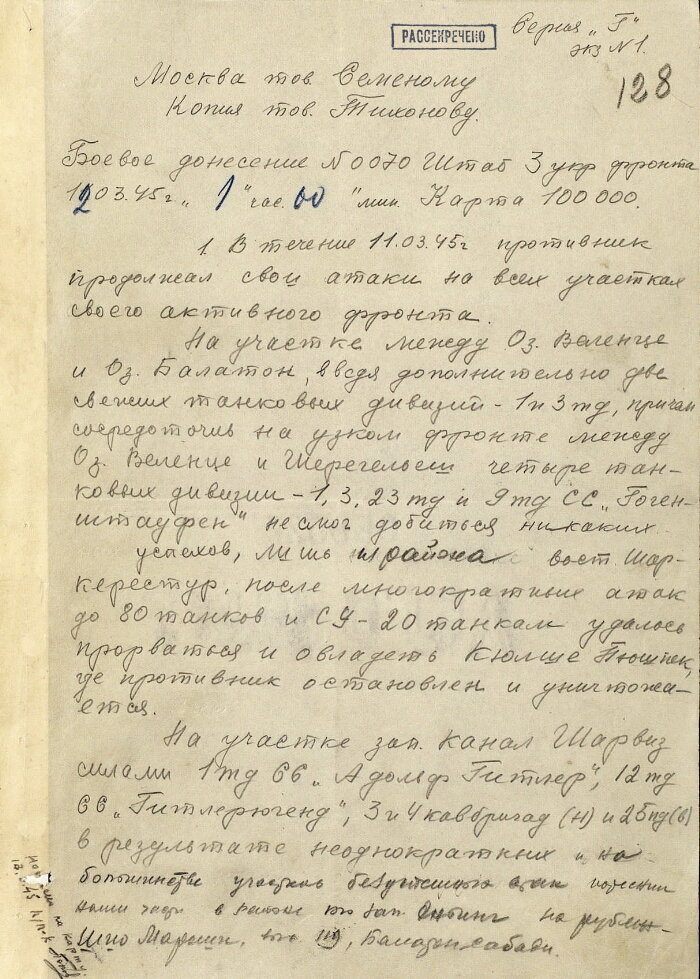 РАССЕКРЕЧЕНО
Серия „Г"
экз N 1.
128
Москва тов. Семеному
Копия тов. Тихонову.
Боевое донесение N 0070 Штаб 3 укр фронта
12 03.45 г. „ 1 " час. 00 " мин. Карта 100 000.
1. В течение 11.03.45г противник
продолжал свои атаки на всех участках
своего активного фронта.
На участке между Оз. Веленце
и Оз. Балатон, введя дополнительно две
свежих танковых дивизии - 1 и 3 тд, причем
сосредоточив на узком фронте между
Оз. Веленце и Шерегельеш четыре тан-
ковых дивизии - 1, 3, 23 тд и 9 тд СС „Гоген-
штауфен" не смог добиться никаких
успехов, лишь района вост. Шар-
керестур, после многократных атак
до 80 танков и СУ - 20 танкам удалось
прорваться и овладеть Кюлше Пюшпек,
где противник остановлен и уничтожа-
ется.
На участке зап. канал Шарвиз
силами 1 тд СС „Адольф Гитлер", 12 тд
СС „Гитлерюгенд", 3 и 4 кавбригад (н) и 25 пд (в)
в результате неоднократных и на
большинстве участков атак
наши части в на рубеж